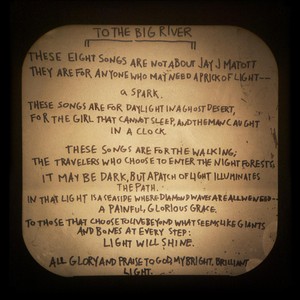 TO THE BIG RIVER
THESE EIGHT SONGS ARE NOT ABOUT JAY J MATOTT
THEY ARE FOR ANYONE WHO MAY NEED A PRICK OF LIGHT--
A SPARK.
THESE SONGS ARE FOR DAYLIGHT IN A GHOST DESERT,
FOR THE GIRL THAT CANNOT SLEEP, AND THE MAN CAUGHT
IN A CLOCK.
THESE SONGS ARE FOR THE WALKING;
THE TRAVELERS WHO CHOOSE TO ENTER THE NIGHT FORESTS
IT MAY BE DARK, BUT A PATCH OF LIGHT ILLUMINATES
THE PATH.
IN THAT LIGHT IS A SEASIDE WHERE DIAMOND WAVES ARE ALL WE NEED--
A PAINFUL, GLORIOUS GRACE.
TO THOSE THAT CHOOSE TO LIVE BEYOND WHAT SEEMS LIKE GIANTS
AND BONES AT EVERY STEP:
LIGHT WILL SHINE.
ALL GLORY AND PRAISE TO GOD, MY BRIGHT, BRILLIANT
LIGHT.